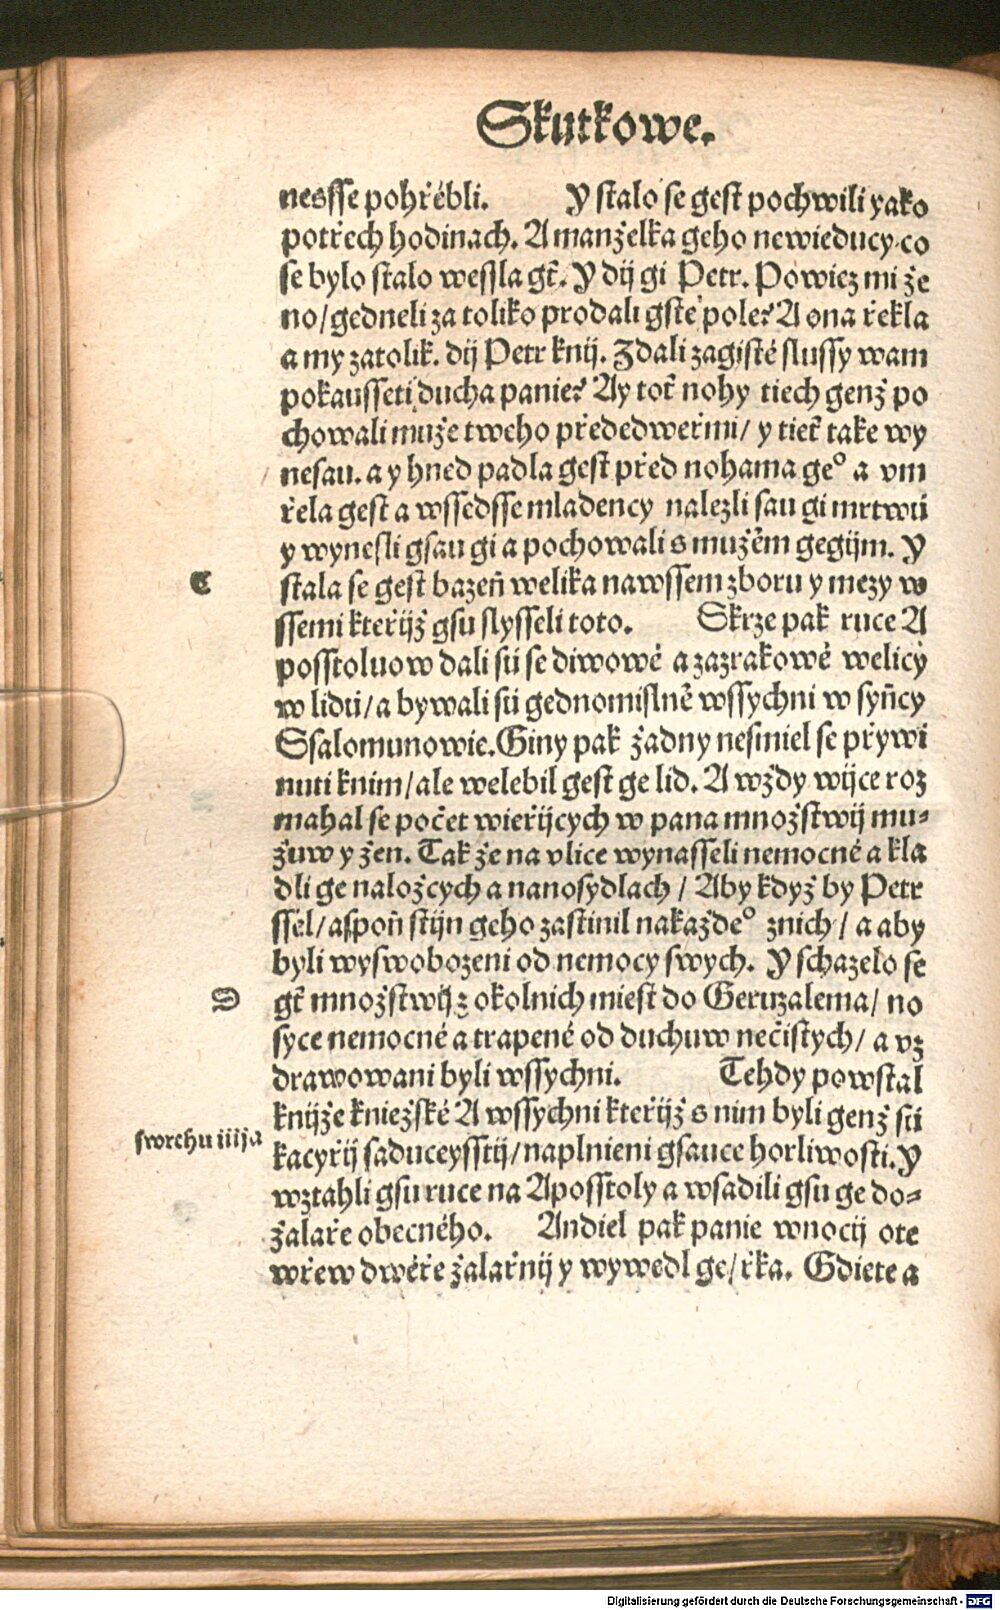 Skutkowe.
nesſſe pohřébli. Y ſtalo ſe geſt pochwili yako
potřech hodinach. A manżelka geho newieducy co
ſe bylo ſtalo weſſla gt̃. Y dij gi Petr. Powiez mi że
no/gedneli za toliko prodali gſte pole? A ona řekla
a my zatolik. dij Petr knij. Zdali zagiſté ſluſſy wam
pokauſſeti ducha panie? Ay tot̃ nohy tiech genż po
chowali muże tweho přededweřmi/ y tiet̃ take wy
neſau. a y hned padla geſt před nohama ge° a vm
řela geſt a wſſedſſe mladency nalezli ſau gi mrtwú
y wyneſli gſau gi a pochowali s mużem gegijm. Y
C
ſtala ſe geſt bazeň welika nawſſem zboru y mezy w
ſſemi kteřijż gſu ſlyſſeli toto. Skrze pak ruce A
poſſtoluow dali sú ſe diwowé a zazrakowé welicý
w lidú/a bywali sú gednomiſlně wſſychni w ſyňcy
Sſalomunowie. Giny pak żadny neſmiel ſe přywi
nuti knim/ale welebil geſt ge lid. A wżdy wijce roz
mahal ſe počet wieřijcych w pana mnożſtwij mu⸗
żuw y żen. Tak że na vlice wynaſſeli nemocné a kla
dli ge nalożcych a nanoſydlach / Aby kdyż by Petr
ſſel/aſpoň ſtijn geho zaſtinil nakażde° znich / a aby
byli wyswobozeni od nemocy ſwych. Y ſchazelo ſe
D
gt̃ mnożſtwij z okolnich mieſt do Geruzalema/ no
ſyce nemocné a trapené od duchuw nečiſtych/ a vz
drawowani byli wſſychni. Tehdy powſtal
knijże knieżſké A wſſychni kteřijż s nim byli genż sú
ſwrchu iiija
kacyřij ſaduceyſſtij/naplnieni gſauce horliwoſti. Y
wztahli gſu ruce na Apoſſtoly a wſadili gſu ge do⸗
żalaře obecného. Andiel pak panie wnocij ote
wřew dwéře żalařnij y wywedl ge/řka. Gdiete a
Digitalisierung gefördert durch die Deutsche Forschungsgemeinschaft - DFG